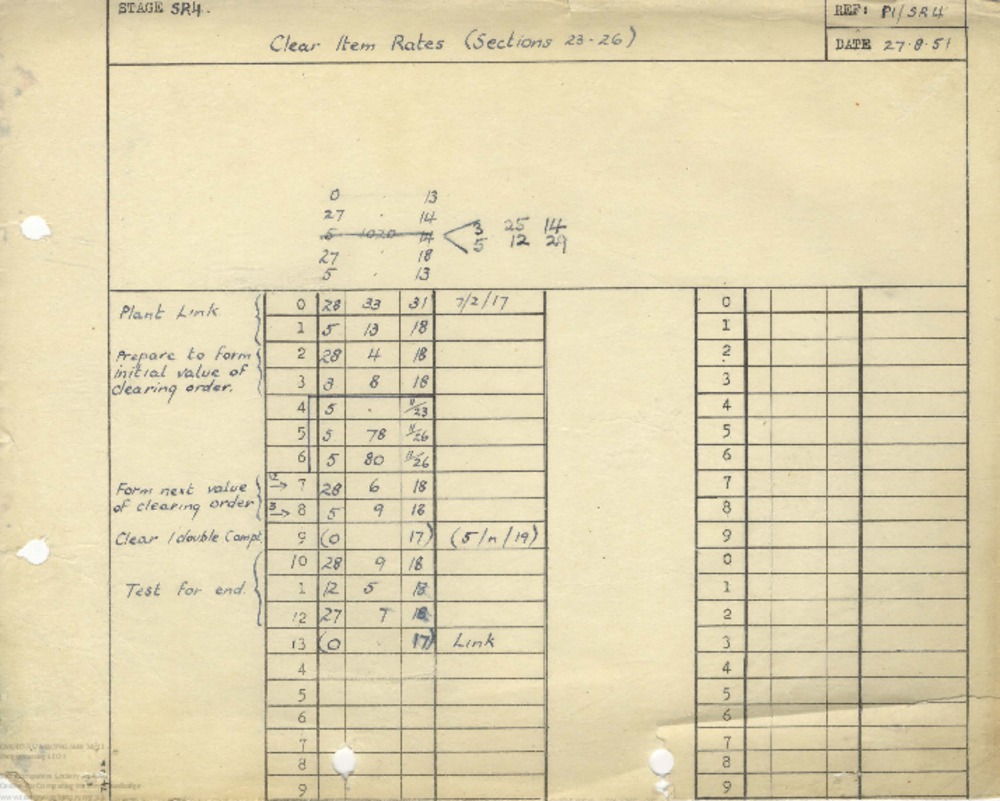 STAGE SR4.
REF: P1/SR4
Clear Item Rates (Sections 23-26)
DATE 27·8·51
0 13
27 · 14
5 1020 14
3 25 14
5 12 29
27 · 18
5 · 13
Plant Link
0 28 33 31 7/2/17
1 5 13 18
Prepare to form initial value of clearing order.
2 28 4 18
3 3 8 18
4 5 · /23
5 5 78 /26
6 5 80 /26
Form next value of clearing order
→ 7 28 6 18
3 → 8 5 9 18
Clear 1 double Compt.
9 (0 17) (5/n/19)
Test for end.
10 28 9 18
1 12 5 18
12 27 7 18
13 (0 · 17) Link
4
5
6
7
8
9
0
1
2
3
4
5
6
7
8
9
0
1
2
3
4
5
6
7
8
9